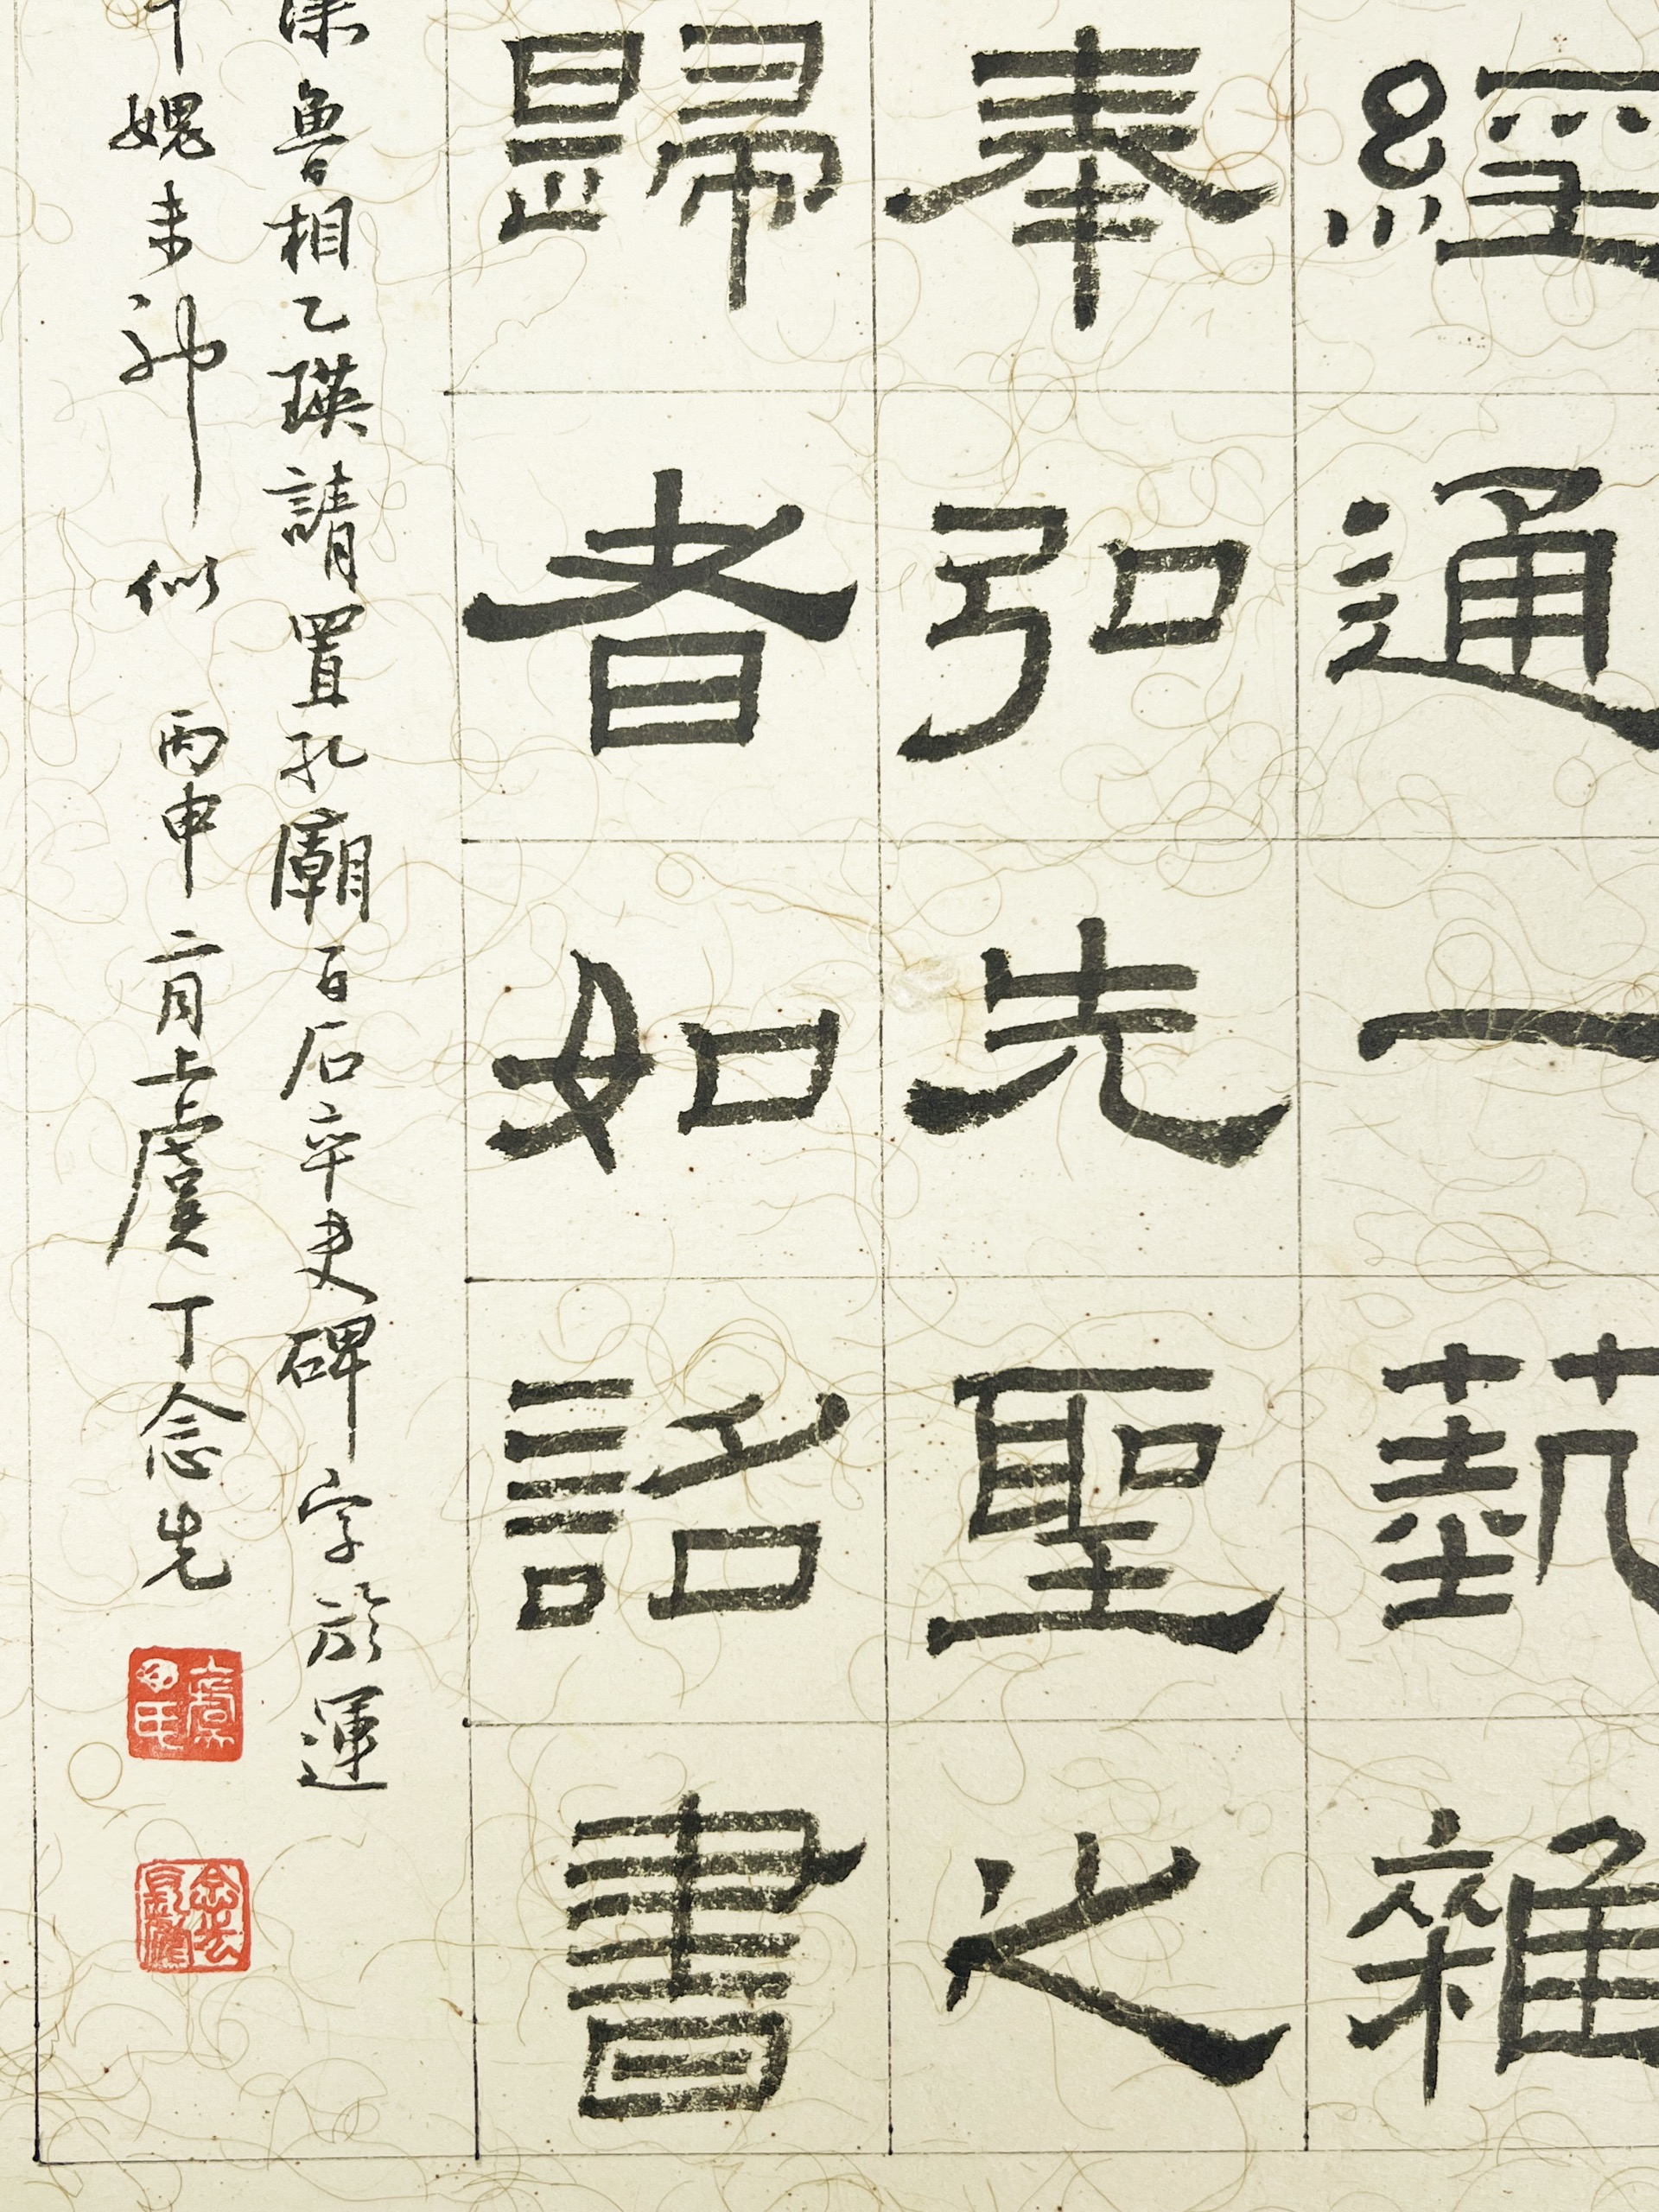 經通一藝雜
奉弘先聖之
歸者如詔書
魯相乙瑛請置孔廟百石卒史碑字於運
愧未神似 丙申二月上虞丁念先